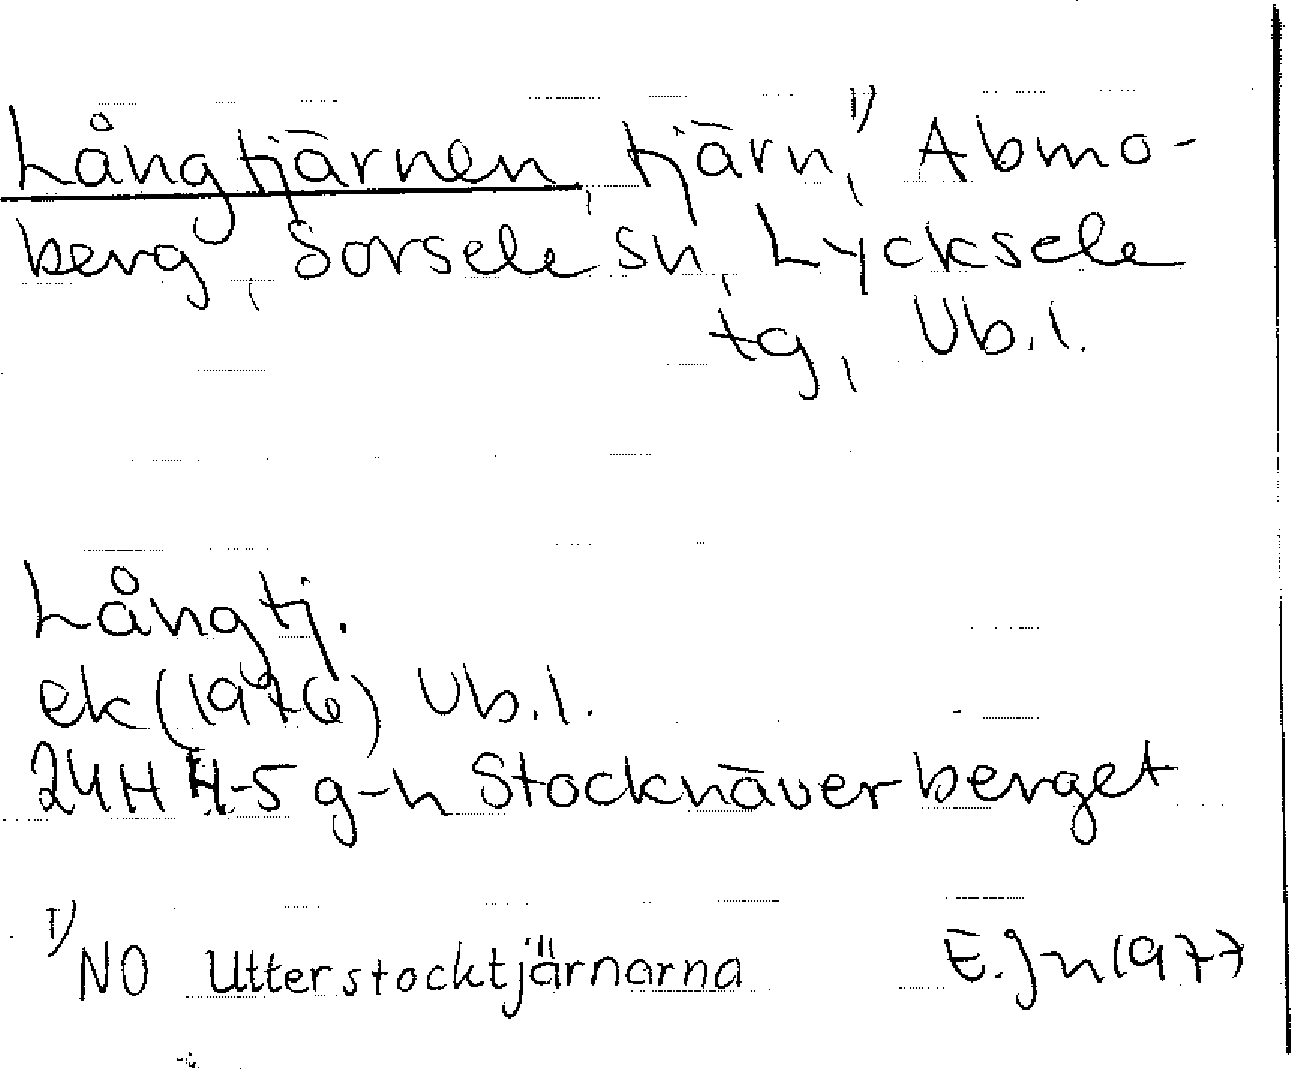 Långtjärnen, tjärn,¹⁾ Abmo-
berg, Sorsele sn, Lycksele
tg, Vb.l.
Långtj.
ek (1976) Vb.l.
24H 4-5 g-h Stocknäverberget
¹⁾ NO Utterstocktjärnarna E. Jn 1977